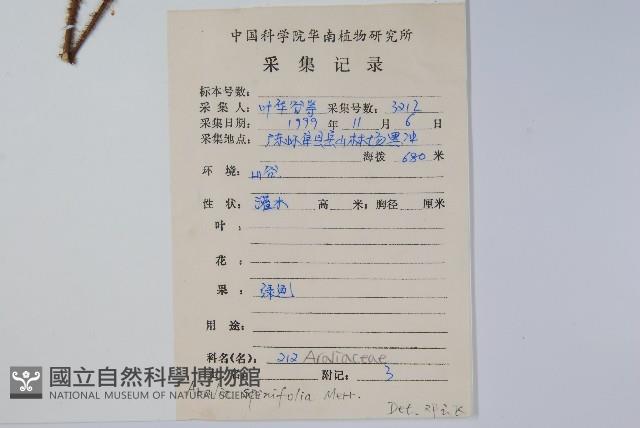 中国科学院华南植物研究所
采集记录
标本号数:
采集人:叶华谷等 采集号数:3212
采集日期: 1999 年 11 月 6 日
采集地点:
海拨 680 米
环境:山谷
性状:灌木 高 米;胸径 厘米
叶:
花:
果:绿色
用途:
科名(名): 212 Araliaceae
附记: 3
spinifolia Merr.
Det.
國立自然科學博物館
NATIONAL MUSEUM OF NATURAL SCIENCE